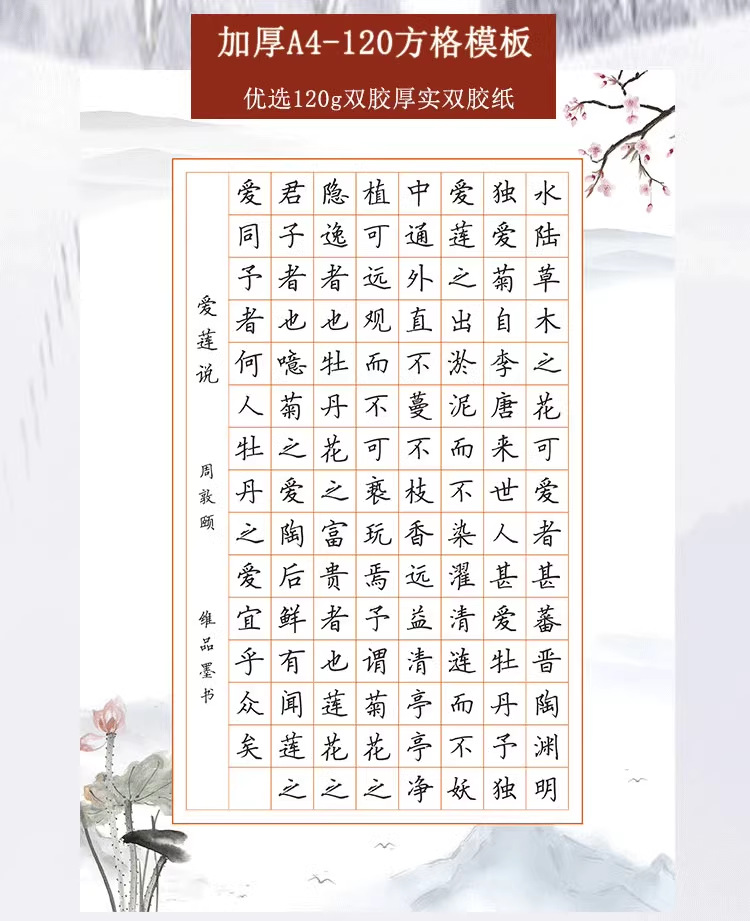 加厚A4-120方格模板
优选120g双胶厚实双胶纸
水陆草木之花可爱者甚蕃晋陶渊明
独爱菊自李唐来世人甚爱牡丹予独
爱莲之出淤泥而不染濯清涟而不妖
中通外直不蔓不枝香远益清亭亭净
植可远观而不可亵玩焉予谓菊花之
隐逸者也牡丹花之富贵者也莲花之
君子者也噫菊之爱陶后鲜有闻莲之
爱同予者何人牡丹之爱宜乎众矣
爱莲说 周敦颐 维品墨书